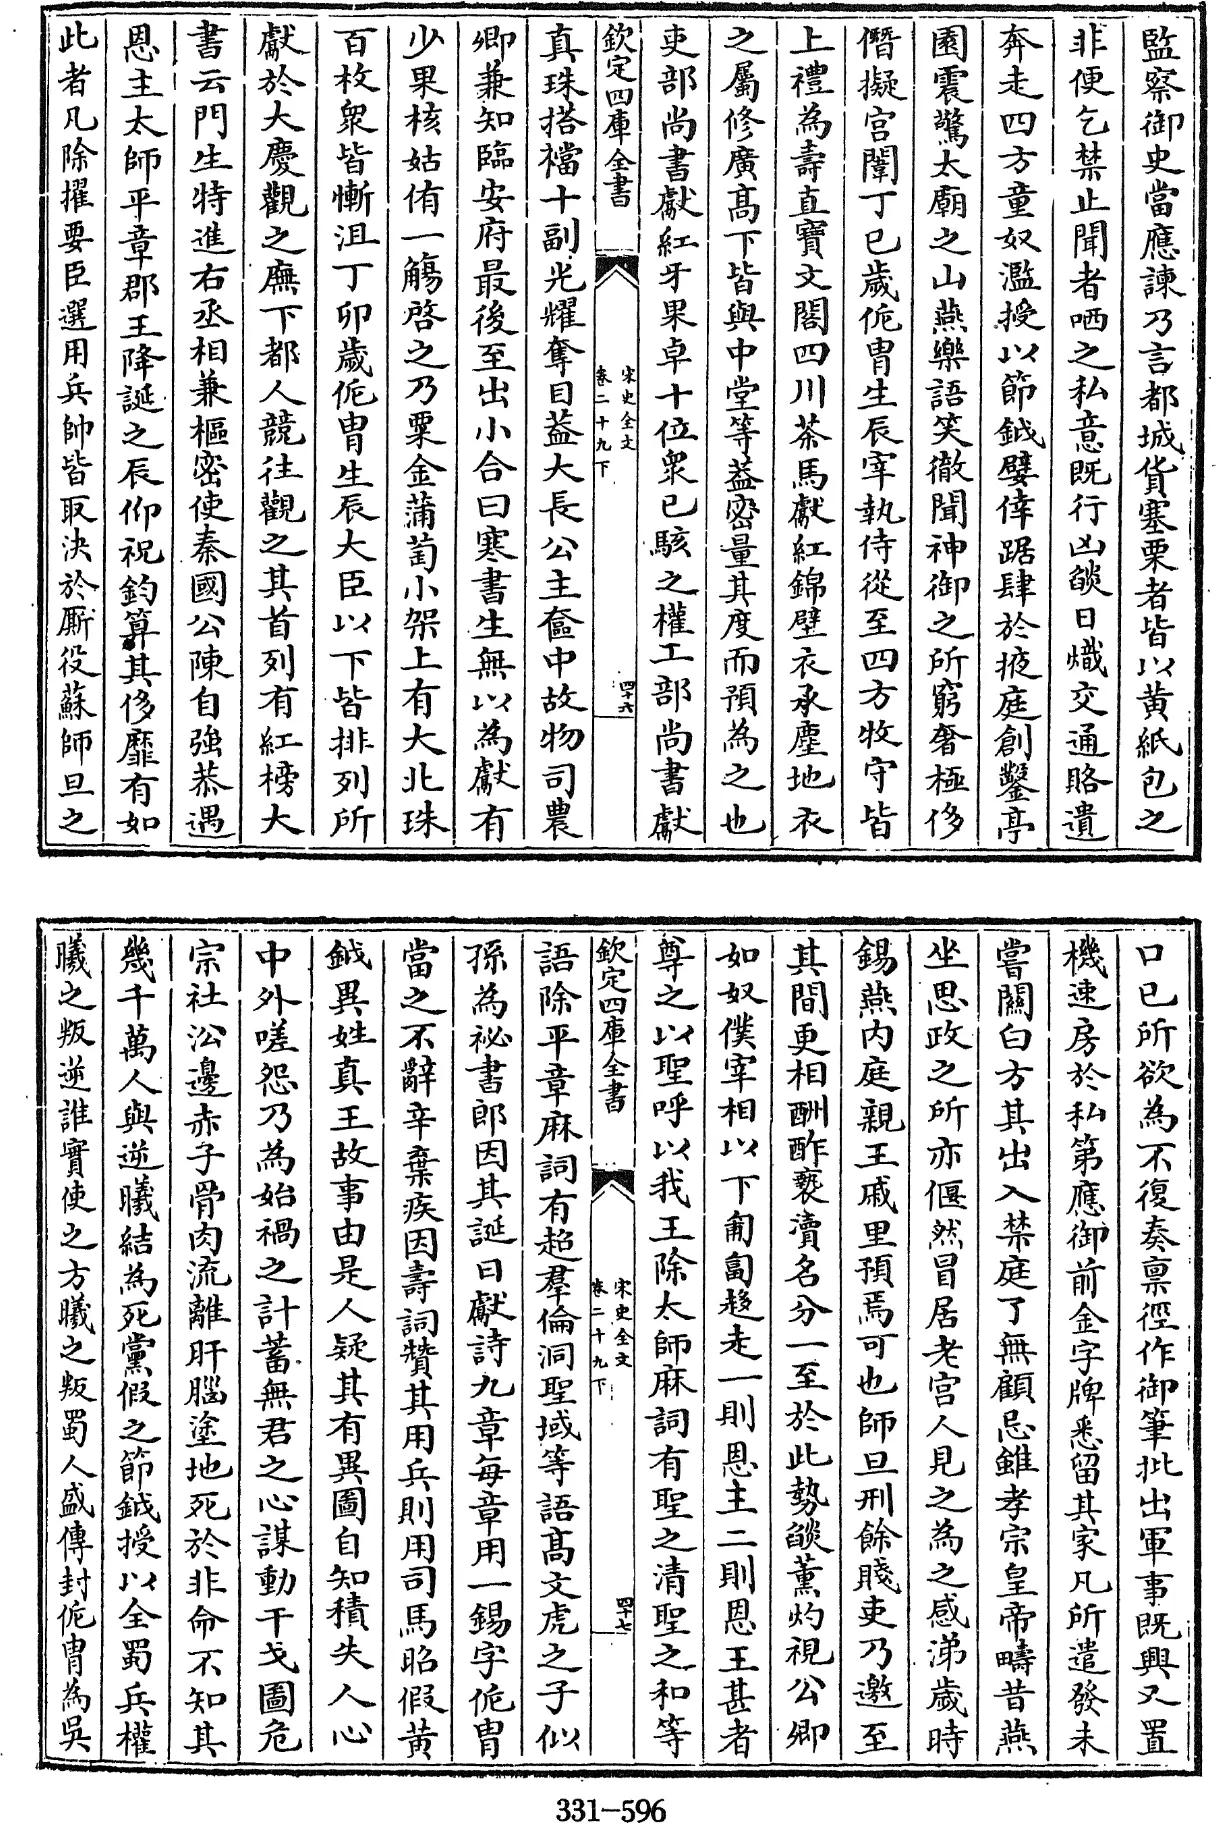 監察御史當應諫乃言都城貨塞栗者皆以黄紙包之
非便乞禁止聞者哂之私意既行凶燄日熾交通賂遺
奔走四方童奴濫授以節鉞嬖倖踞肆於掖庭創鑿亭
園震驚太廟之山燕樂語笑徹聞神御之所窮奢極侈
僭擬宫闈丁巳歲侂胄生辰宰執侍從至四方牧守皆
上禮為壽直寶文閣四川茶馬獻紅錦壁衣承塵地衣
之屬修廣髙下皆與中堂等葢密量其度而預為之也
吏部尚書獻紅牙果卓十位衆已駭之權工部尚書獻
欽定四庫全書
宋史全文
卷二十九下
四十六
真珠搭襠十副光耀奪目葢大長公主奩中故物司農
卿兼知臨安府最後至出小合曰寒書生無以為獻有
少果核姑侑一觴啓之乃粟金蒲萄小架上有大北珠
百枚衆皆慚沮丁卯歲侂胄生辰大臣以下皆排列所
獻於大慶觀之廡下都人競往觀之其首列有紅榜大
書云門生特進右丞相兼樞密使秦國公陳自強恭遇
恩主太師平章郡王降誕之辰仰祝鈞算其侈靡有如
此者凡除擢要臣選用兵帥皆取決於厮役蘇師旦之
口已所欲為不復奏禀徑作御筆批出軍事既興又置
機速房於私第應御前金字牌悉留其家凡所遣發未
嘗關白方其出入禁庭了無顧忌雖孝宗皇帝疇昔燕
坐思政之所亦偃然冒居老宫人見之為之感涕歲時
錫燕内庭親王戚里預焉可也師旦刑餘賤吏乃邀至
其間更相酬酢䙝瀆名分一至於此勢燄薰灼視公卿
如奴僕宰相以下匍匐趍走一則恩主二則恩王甚者
尊之以聖呼以我王除太師麻詞有聖之清聖之和等
欽定四庫全書
宋史全文
卷二十九下
四十七
語除平章麻詞有超羣倫洞聖域等語髙文虎之子似
孫為祕書郎因其誕日獻詩九章每章用一錫字侂胄
當之不辭辛棄疾因壽詞贊其用兵則用司馬昭假黄
鉞異姓真王故事由是人疑其有異圖自知積失人心
中外嗟怨乃為始禍之計蓄無君之心謀動干戈圖危
宗社㳂邊赤子骨肉流離肝腦塗地死於非命不知其
幾千萬人與逆曦結為死黨假之節鉞授以全蜀兵權
曦之叛逆誰實使之方曦之叛蜀人盛傳封侂胄為吳
331-596